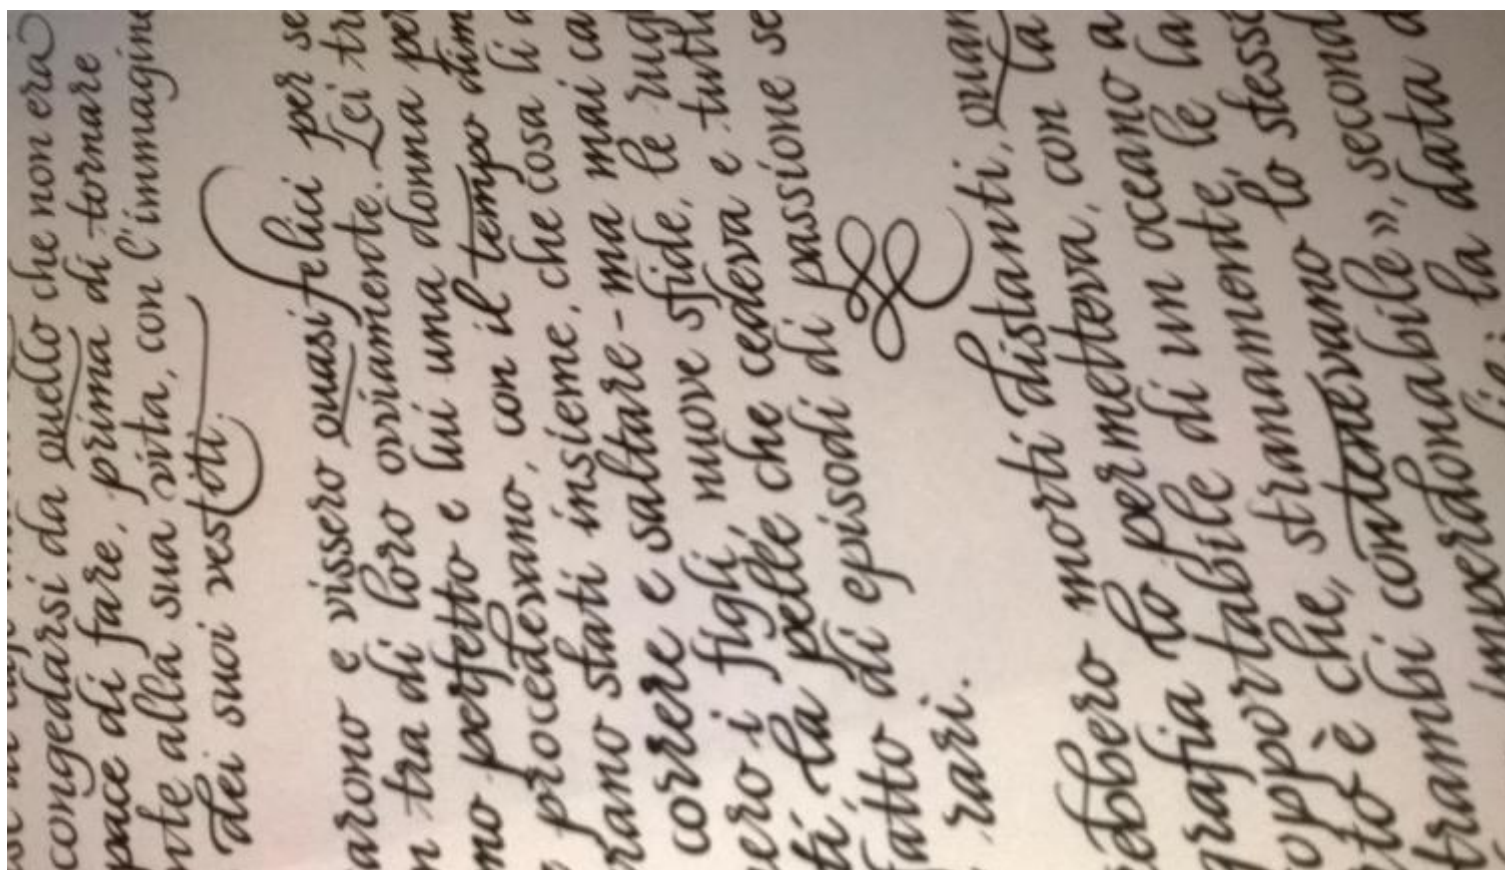 congedarsi da quello che non era
pace di fare, prima di tornare
nte alla sua vita, con l'immagine
dei suoi vestiti.
arono e vissero quasi felici per se
n tra di loro ovviamente. Lei tr
mo perfetto e lui una donna per
procedevano, con il tempo dim
rano stati insieme, che cosa li a
correre e saltare - ma mai ca
ero i figli, nuove sfide, le rug
ti, la pelle che cedeva e tutt
fatto di episodi di passione se
rari.
ebbero morti distanti, quan
grafia lo permetteva, con la
opportabile di un oceano a
to è che, stranamente, le la
trambi contenevano lo stess
imperdonabile», second
la data d